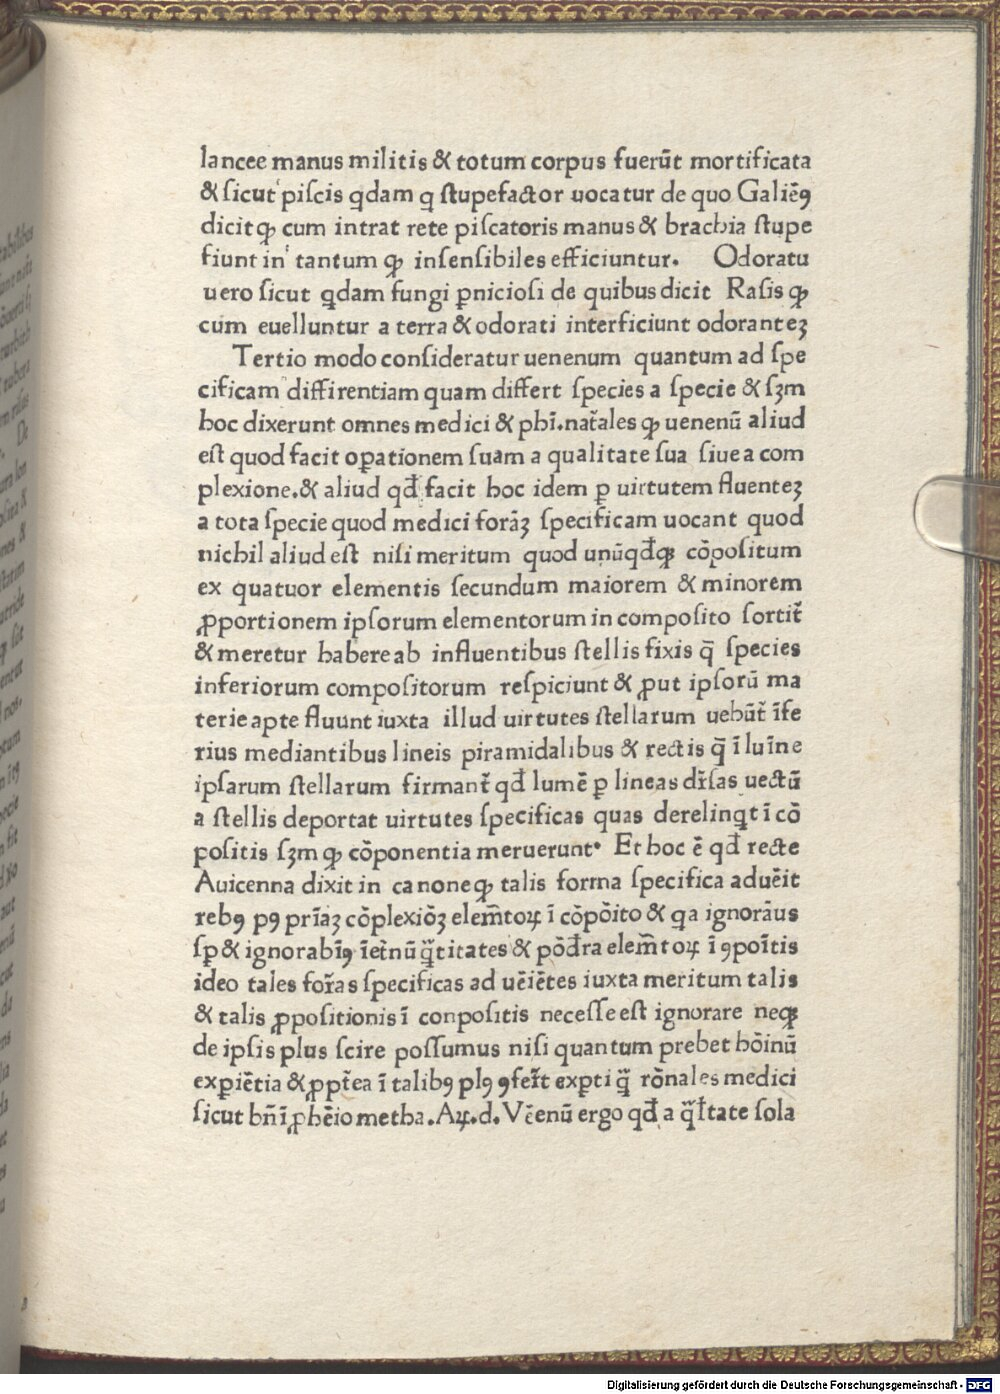 lancee manus militis & totum corpus fuerūt mortificata
& sicut piscis qdam q stupefactor uocatur de quo Galiēꝯ
dicit ꝙ cum intrat rete piscatoris manus & brachia stupe
fiunt in tantum ꝙ insensibiles efficiuntur. Odoratu
uero sicut qdam fungi ꝑniciosi de quibus dicit Rasis ꝙ
cum euelluntur a terra & odorati interficiunt odoranteꝫ
Tertio modo consideratur uenenum quantum ad spe
cificam diffirentiam quam differt species a specie & sꝫm
hoc dixerunt omnes medici & phī.nat̄ales ꝙ uenenū aliud
est quod facit oꝑationem suam a qualitate sua siue a com
plexione.& aliud qđ facit hoc idem ꝑ uirtutem fluenteꝫ
a tota specie quod medici forāꝫ specificam uocant quod
nichil aliud est nisi meritum quod unūqđꝙ cōpositum
ex quatuor elementis secundum maiorem & minorem
ꝓportionem ipsorum elementorum in composito sortit̄
& meretur habere ab influentibus stellis fixis q̄ species
inferiorum compositorum respiciunt & ꝓut ipsorū ma
terie apte fluunt iuxta illud uirtutes stellarum uehūt̄ īfe
rius mediantibus lineis piramidalibus & rectis q̄ ī luīne
ipsarum stellarum firmant̄ qđ lumē ꝑ lineas dr̄sas uectū
a stellis deportat uirtutes specificas quas derelinqt ī cō
positis sꝫm ꝙ cōponentia meruerunt. Et hoc ē qđ recte
Auicenna dixit in canone ꝙ talis forma specifica aduēit
rebꝯ pꝯ prīaꝫ cōplexiōꝫ elem̄toꝝ ī cōpōito & qa ignorāus
sp & ignorabīꝯ īet̄nū q̄titates & pōđra elem̄toꝝ ī ꝯpoītis
ideo tales for̄as specificas ad uēiētes iuxta meritum talis
& talis ꝓpositionis ī conpositis necesse est ignorare neqꝫ
de ipsis plus scire possumus nisi quantum prebet hōinū
expiētia & ꝓpt̄ea ī talibꝯ plꝯ ꝯfer̄t expti q̄ rōnales medici
sicut bn̄ ī ꝓhēio metha.Aꝝ.d. Vēenū ergo qđ a q̄l̄tate sola
Digitalisierung gefördert durch die Deutsche Forschungsgemeinschaft - DFG